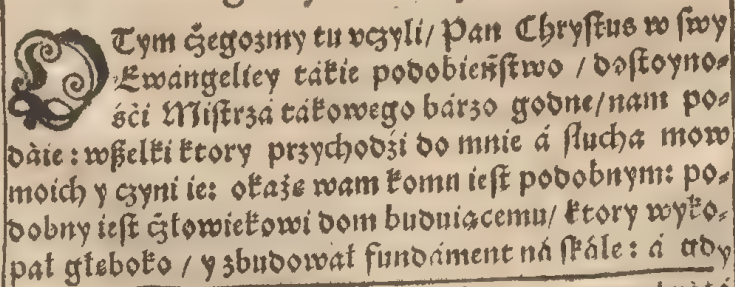 O Tym cżegozmy tu vczyli/ Pan Chrystus w swy
Ewángeliey tákie podobieństwo / dostoyno⸗
śći Mistrzá tákowego bárzo godne/ nam po⸗
dáie: wszelki ktory przychodźi do mnie á słucha mow
moich y czyni ie: okaże wam komu iest podobnym: po⸗
dobny iest cżłowiekowi dom buduiącemu/ ktory wyko⸗
pał głeboko / y zbudował fundáment ná skále: á gdy